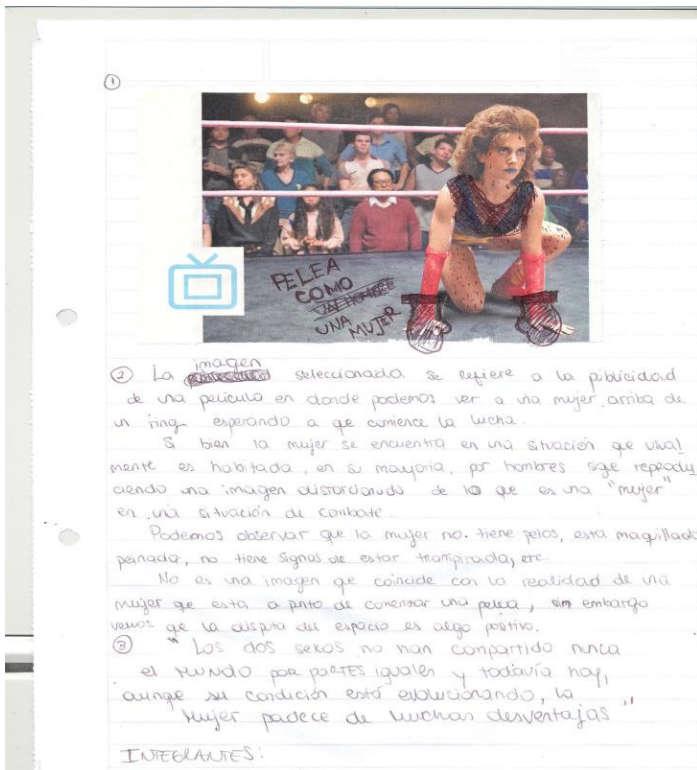 ①
PELEA
COMO
UNA MUJER
② La imagen seleccionada se refiere a la publicidad
de una pelicula en donde podemos ver a una mujer arriba de
un ring esperando a que comience la lucha.
Si bien la mujer se encuentra en una situación que usual
mente es habitada, en su mayoria, por hombres sigue reprodu
ciendo una imagen distorcionada de lo que es una "mujer"
en una situación de combate.
Podemos observar que la mujer no tiene pelos, esta maquillada
peinada, no tiene signos de estar transpirada, etc.
No es una imagen que coincide con la realidad de una
mujer que esta a punto de comenzar una pelea, sin embargo
vemos que la disputa del espacio es algo positivo.
③ "Los dos sexos no han compartido nunca
el MUNDO por paRTES iguales y todavía hoy,
aunque su condición está evolucionando, la
Mujer padece de muchas desventajas"
INTEGRANTES: